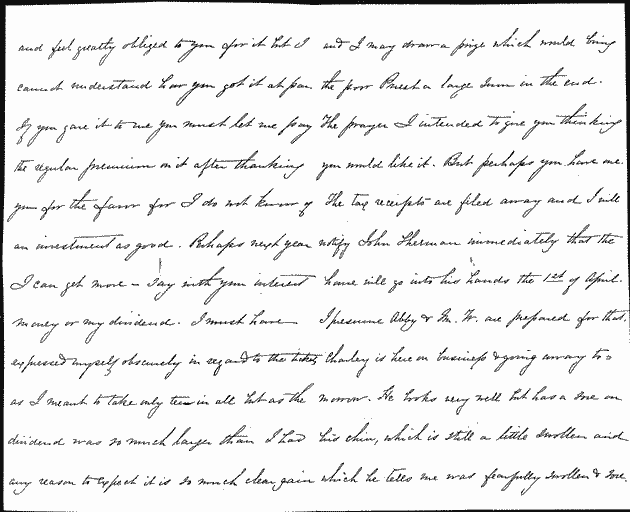 and feel greatly obliged to you for it but I
cannot understand how you got it at par.
If you gave it to me you must let me pay
the regular premium on it after thanking
you for the favor for I do not know of
an investment as good. Perhaps next year
I can get more – say with your interest
money or my dividend. I must have
expressed myself obscurely in regard to the tickets
as I meant to take only ten in all but as the
dividend was so much larger than I had
any reason to expect it is so much clear gain
and I may draw a prize which would bring
the poor Priest a large sum in the end.
The prayer I intended to give you thinking
you would like it. But perhaps you have one.
The tax receipts are filed away and I will
notify John Sherman immediately that the
house will go into his hands the 1st of April.
I presume Abby & Mr. W. are prepared for that.
Charley is here on business & going away to=
morrow. He looks very well but has a sore on
his chin, which is still a little swollen and
which he tells me was fearfully swollen & sore.